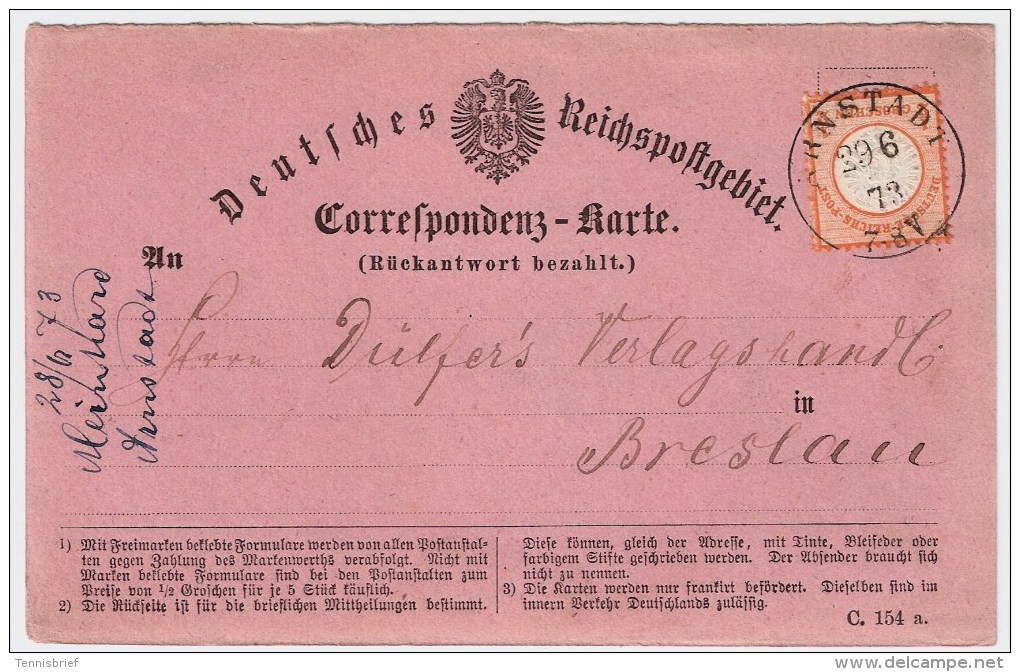 Deutſches Reichspoſtgebiet.
Correſpondenz-Karte.
(Rückantwort bezahlt.)
ARNSTADT
29 6
73
7-8V
DEUTSCHE REICHS-POST
An
Herrn Dülfer's Verlagshandl.
in
Breslau
28/6 73
Meinhard
Arnstadt
1) Mit Freimarken beklebte Formulare werden von allen Poſtanſtal-
ten gegen Zahlung des Markenwerths verabfolgt. Nicht mit
Marken beklebte Formulare ſind bei den Poſtanſtalten zum
Preiſe von 1/2 Groſchen für je 5 Stück käuflich.
2) Die Rückſeite iſt für die brieflichen Mittheilungen beſtimmt.
Dieſe können, gleich der Adreſſe, mit Tinte, Bleifeder oder
farbigem Stifte geſchrieben werden. Der Abſender braucht ſich
nicht zu nennen.
3) Die Karten werden nur frankirt befördert. Dieſelben ſind im
innern Verkehr Deutſchlands zuläſſig.
C. 154 a.
Tennisbrief
www.delcampe.net